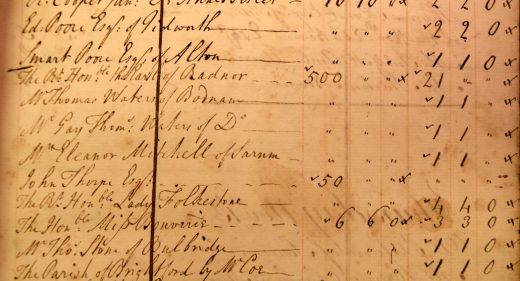 Cooper Junr. St. Annes Street 10 10 0 x 2 2 0 x
Ed. Poore Esqr. of Tidworth " " " 2 2 0 x
Smart Poore Esqr. of Alton " " " 1 1 0 x
The Rt. Honble. the Earl of Radnor 500 " " x 21 " " x
Mr. Thomas Waters of Bodnam " " " 1 1 "
Mr. Gay Thoms. Waters of Do. " " " 1 1 "
Mrs. Eleanor Mitchell of Sarum " " " 1 1 "
John Thorpe Esqr. 50 " " x
The Rt. Honble. Lady Folkestone " " " 4 4 0 x
The Honble. Miss Bouverie 6 6 0 x 3 3 0 x
Mr. Thos. Stone of Bulbridge " " 1 1 0 x
The Parish of Brightford by Mr. Cox " " " 1 1 0 x